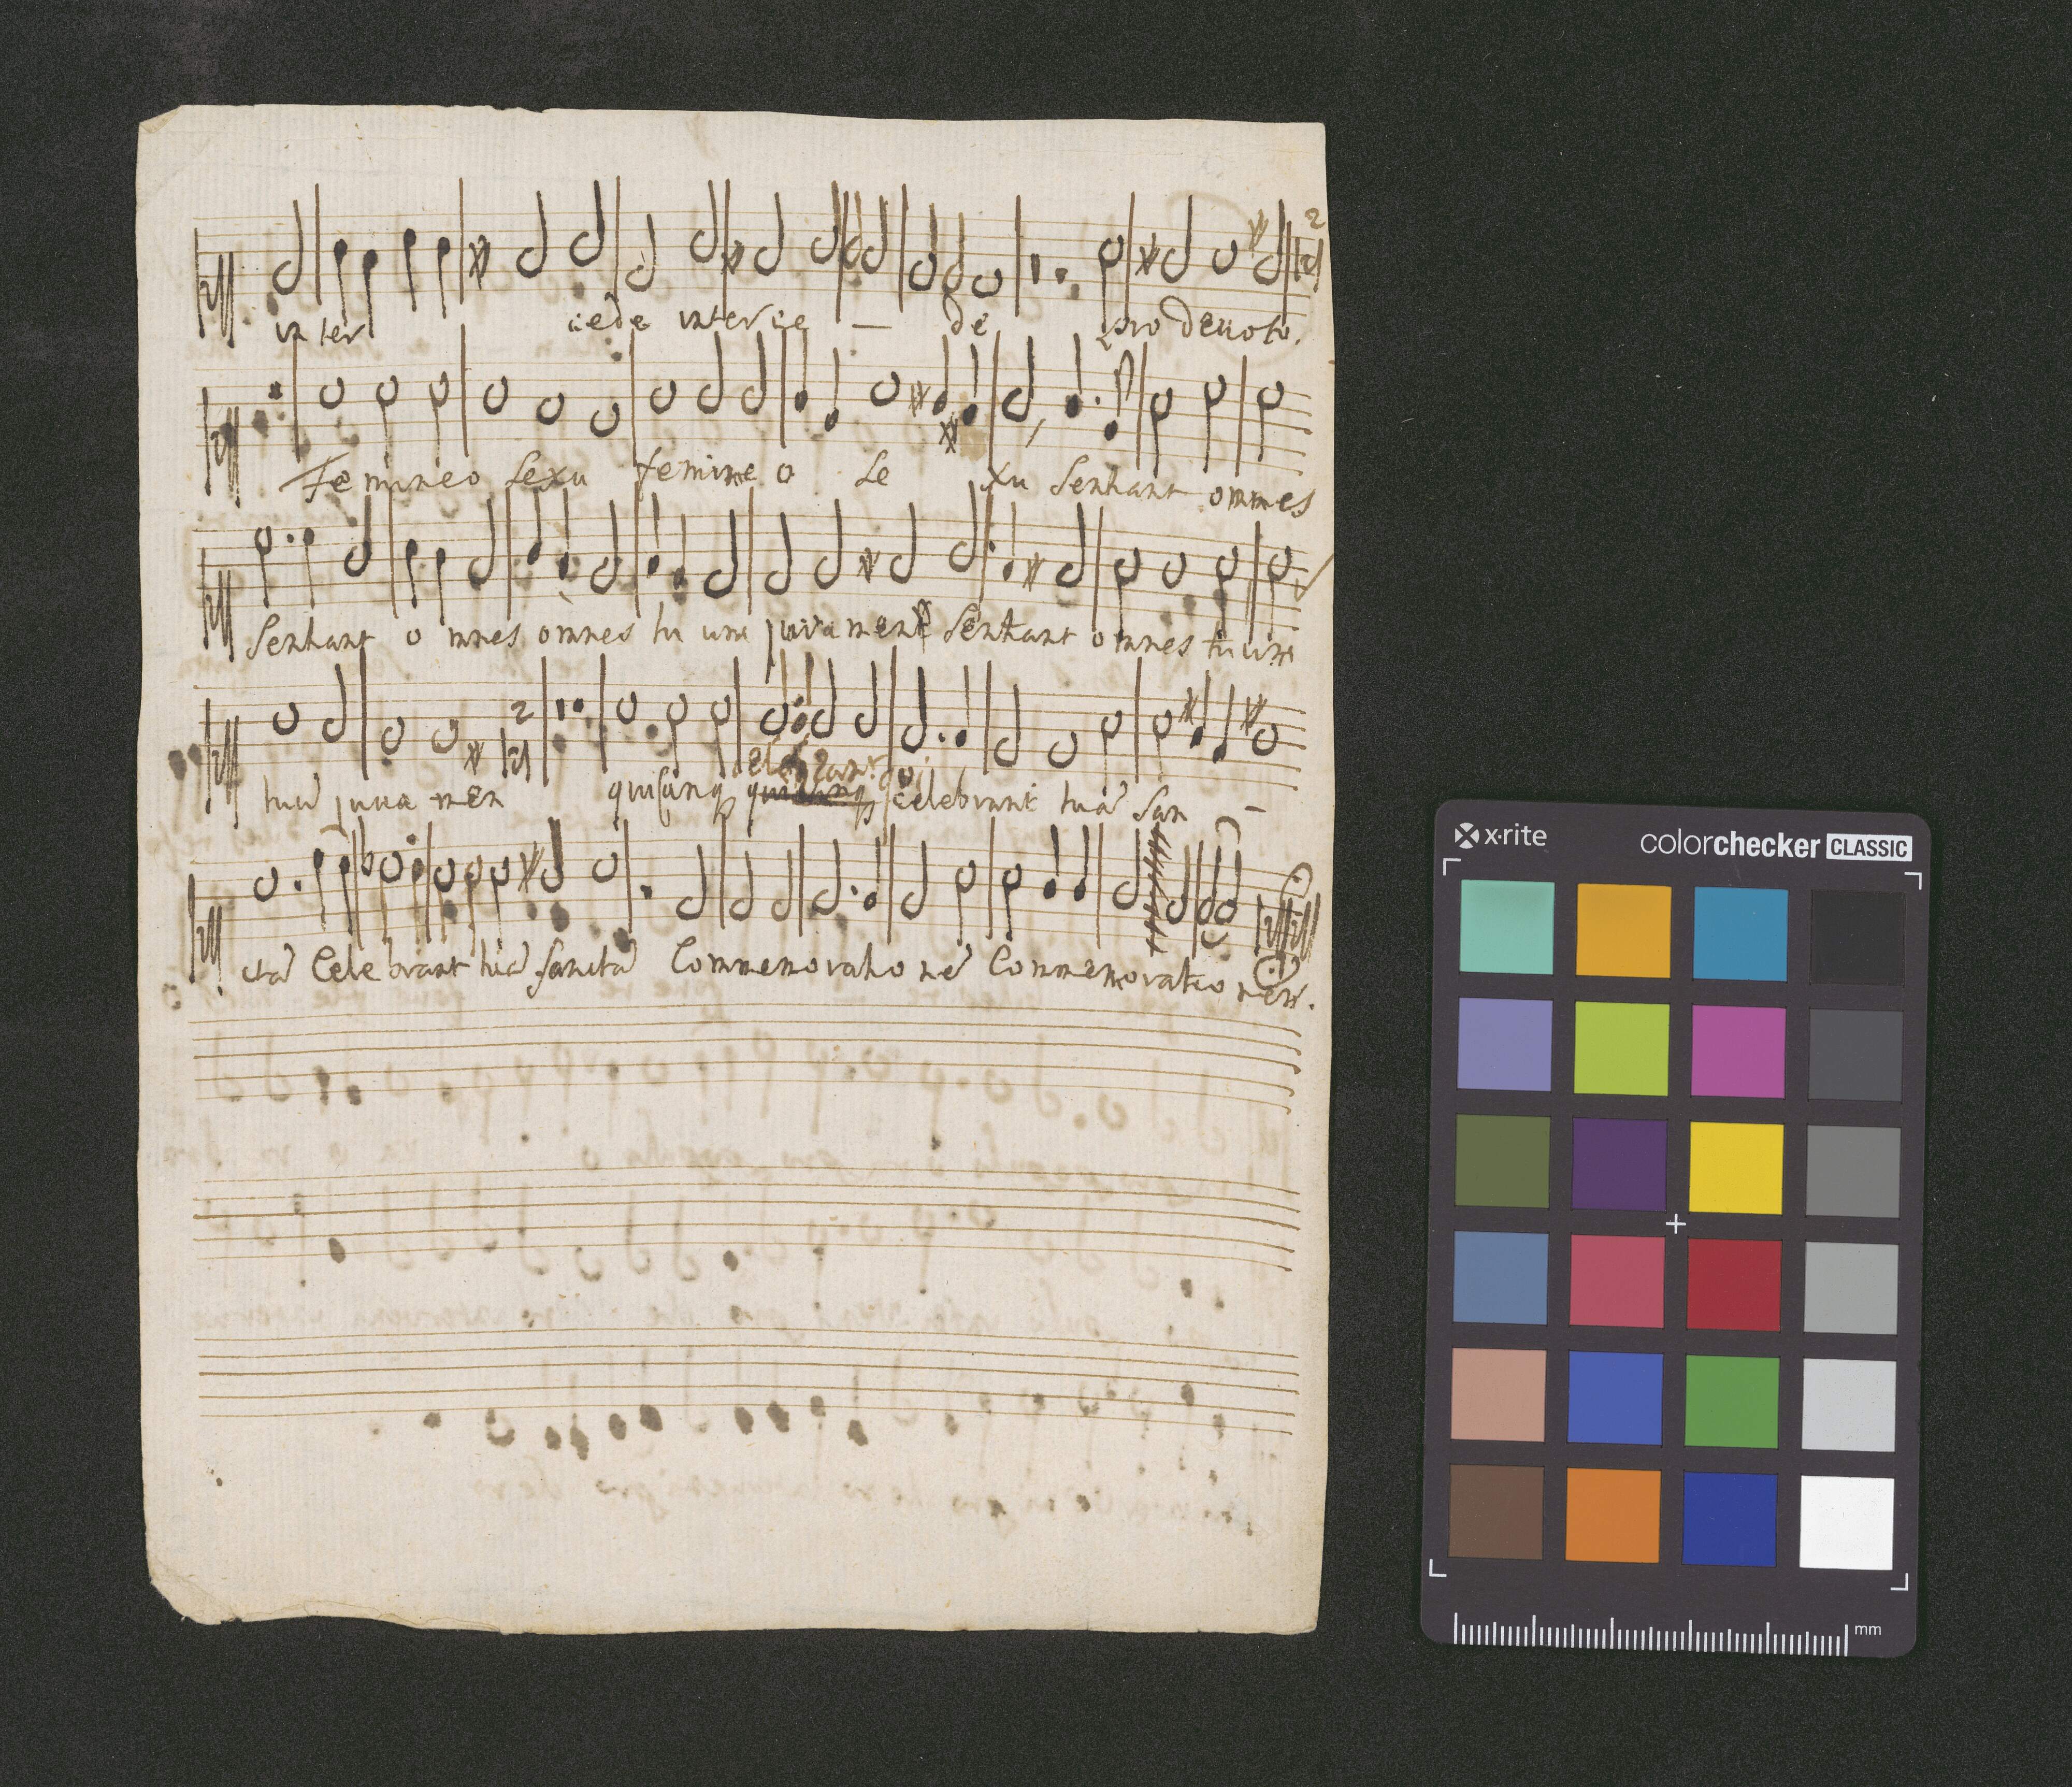 in ter cede interce — de pro devoto.
Femineo sexu femine o se xu sentiant omnes
sentiant o mnes omnes tu um juvament sentiant omnes tuum
tuũ juva men quicunq celebrant tuã san —
ctã Cele brant tuã sanctã Commemoratio nẽ Commemoratio nem.
x-rite
colorchecker CLASSIC
mm